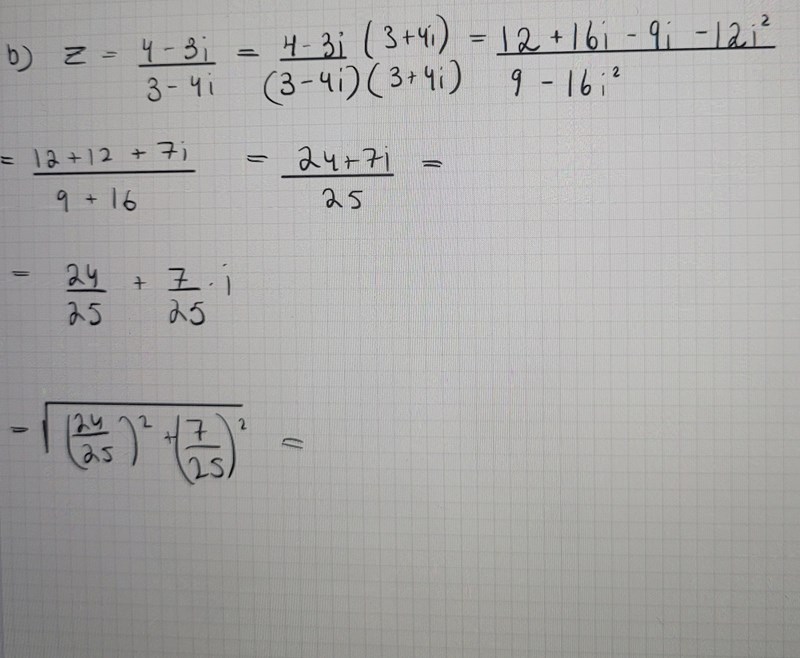 b) z = \frac{4-3i}{3-4i} = \frac{4-3i (3+4i)}{(3-4i)(3+4i)} = \frac{12+16i-9i-12i^2}{9-16i^2}
= \frac{12+12+7i}{9+16} = \frac{24+7i}{25} =
= \frac{24}{25} + \frac{7}{25} \cdot i
= \sqrt{\left(\frac{24}{25}\right)^2 + \left(\frac{7}{25}\right)^2} =